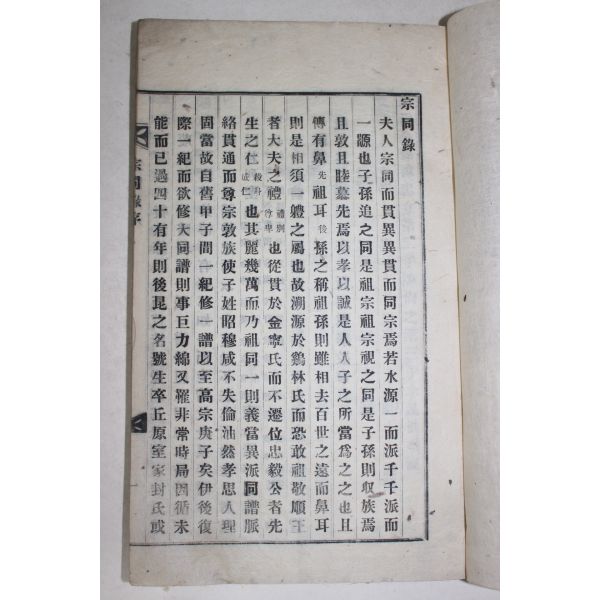 宗同錄
夫人宗同而貫異異貫而同宗焉若水源一而派千千派而
一源也子孫追之同是祖宗祖宗視之同是子孫則収族焉
且敦且睦慕先焉以孝以誠是人人子之所當爲之之也且
傳有鼻先祖耳後孫之称祖孫則雖相去百世之遠而鼻耳
則是相須一體之屬也故溯源於鷄林氏而恐敢祖敬順王
者大夫之禮禮別也從貫於金寧氏而不遷位忠毅公者先
生之仁殺身成仁也其麗幾萬而乃祖同一則義當異派同譜脈
絡貫通而尊宗敦族使子姓昭穆咸不失倫油然孝思人理
固當故自舊甲子間一紀修一譜以至高宗庚子矣伊後復
際一紀而欲修大同譜則事巨力綿又罹非常時局因循未
能而已過四十有年則後昆之名號生卒丘原室家封氏或
宗同錄序